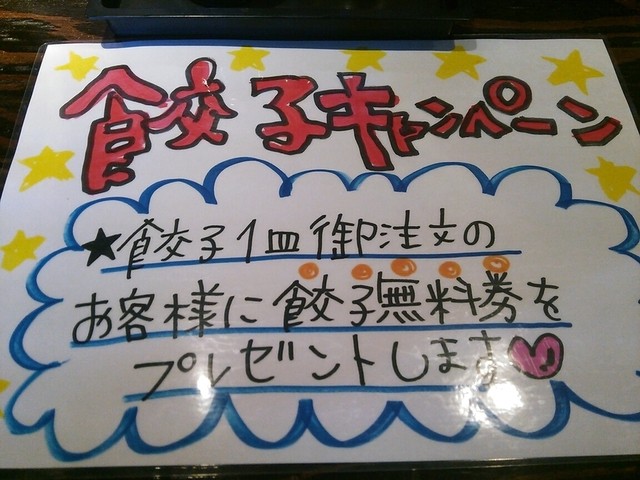 餃子キャンペーン
★餃子1皿御注文の
お客様に餃子無料券を
プレゼントします